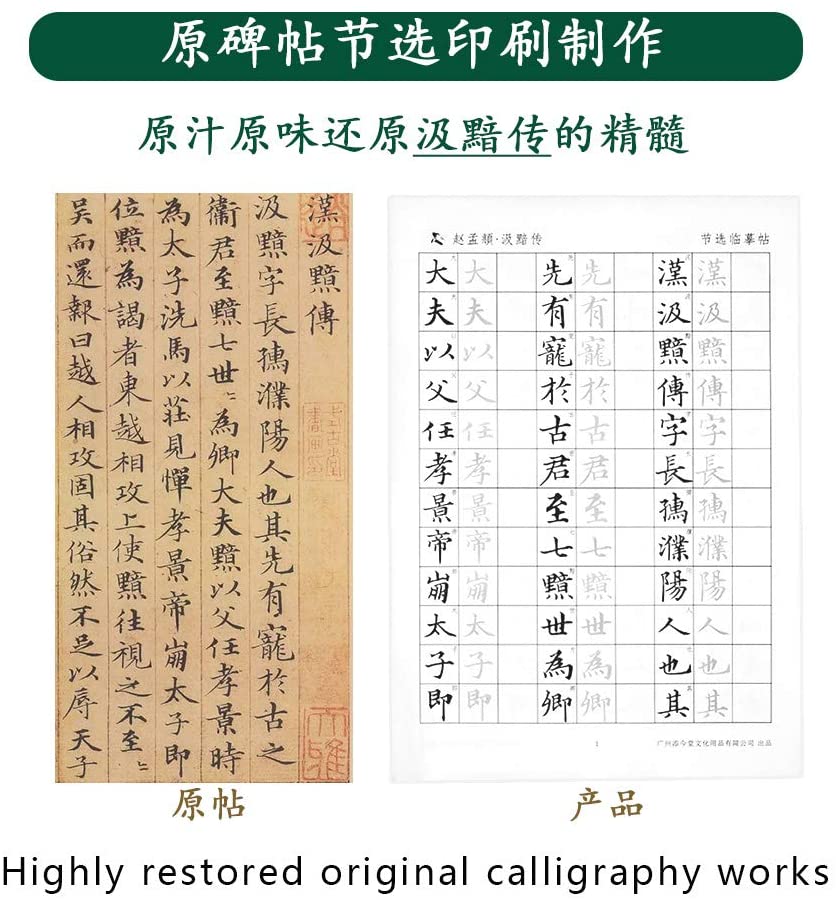 原碑帖节选印刷制作
原汁原味还原汲黯传的精髓
漢汲黯傳
汲黯字長孺濮陽人也其先有寵於古之
衞君至黯七世〻為卿大夫黯以父任孝景時
為太子洗馬以莊見憚孝景帝崩太子即
位黯為謁者東越相攻上使黯往視之不至〻
吳而還報曰越人相攻固其俗然不足以辱天子
原帖
赵孟頫·汲黯传
节选临摹帖
漢汲黯傳字長孺濮陽人也其
漢汲黯傳字長孺濮陽人也其
先有寵於古君至七黯世為卿
先有寵於古君至七黯世為卿
大夫以父任孝景帝崩太子即
大夫以父任孝景帝崩太子即
1
文化用品有限公司 出品
产品
Highly restored original calligraphy works